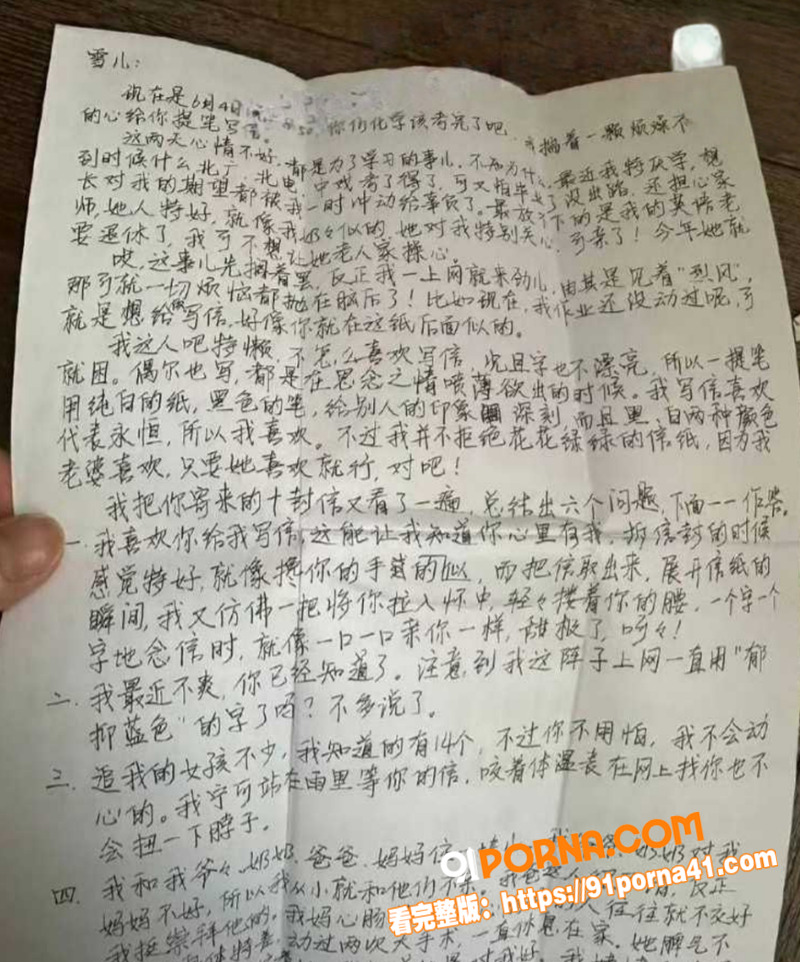 雪儿：
现在是6月4日 你们化学该考完了吧，我揣着一颗烦燥不
的心给你提笔写信。
这两天心情不好，都是为了学习的事儿。不知为什么，最近我特厌学，想
到时候什么北广、北电、中戏考了得了，可又怕毕业了没出路，还担心家
长对我的期望都被我一时冲动给辜负了。最放不下的是我的英语老
师，她人特好，就像我奶奶似的，她对我特别关心，可亲了！今年她就
要退休了，我可不想让她老人家操心。
哎，这事儿先搁着罢，反正我一上网就来劲儿，由其是见着“烈风”，
那可就一切烦恼都抛在脑后了！比如现在，我作业还没动过呢，可
就是想给你写信，好像你就在这纸后面似的。
我这人吧特懒，不怎么喜欢写信，况且字也不漂亮，所以一提笔
就困。偶尔也写，都是在思念之情喷薄欲出的时候。我写信喜欢
用纯白的纸，黑色的笔，给别人的印象深刻，而且黑、白两种颜色
代表永恒，所以我喜欢。不过我并不拒绝花花绿绿的信纸，因为我
老婆喜欢，只要她喜欢就行，对吧！
我把你寄来的十封信又看了一遍，总结出六个问题，下面一一作答。
一.我喜欢你给我写信，这能让我知道你心里有我，拆信封的时候
感觉特好，就像搀你的手的似，而把信取出来，展开信纸的
瞬间，我又仿佛一把将你拉入怀中，轻々搂着你的腰，一个字一个
字地念信时，就像一口一口亲你一样，甜极了，呵々！
二.我最近不爽，你已经知道了。注意到我这阵子上网一直用“郁
抑蓝色”的字了吗？不多说了。
三.追我的女孩不少，我知道的有14个，不过你不用怕，我不会动
心的。我宁可站在雨里等你的信，咬着体温表在网上找你也不
会扭一下脖子。
四.我和我爷々、奶奶、爸爸、妈妈住 奶奶对我
妈妈不好，所以我从小就和他们不亲。我爸 反正
我挺崇拜他的。我妈心肠 人往往就不交好
动过两次大手术，一直休息在家。她脾气不
91PORNA.COM
看完整版：https://91porna41.com